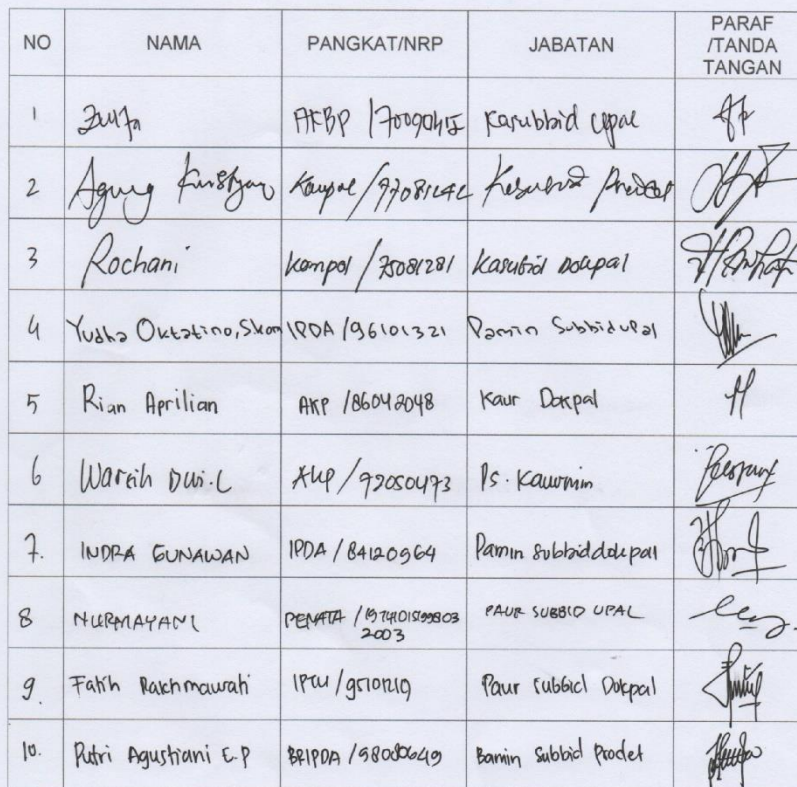 NO NAMA PANGKAT/NRP JABATAN PARAF
/TANDA
TANGAN
1 Zulfa AKBP /70090415 Kasubbid Upal
2 Agung Kompol /77081242
3 Rochani Kompol /75081281 Kasubid Dokpal
4 Yudha Oktatino, Skom IPDA /96101321 Pamin Subbidupal
5 Rian Aprilian AKP /86042048 Kaur Dokpal
6 Warsih Dwi.L AKP /79050473 Ps. Kaurmin
7. INDRA GUNAWAN IPDA / 84120964 Pamin Subbiddokpal
8 NURMAYANI PENATA / PAUR SUBBID UPAL
2003
9. Fatih Rakhmawati IPTU / 95101219 Paur Subbid Dokpal
10. Putri Agustiani E.P BRIPDA /98080649 Bamin Subbid Prodet